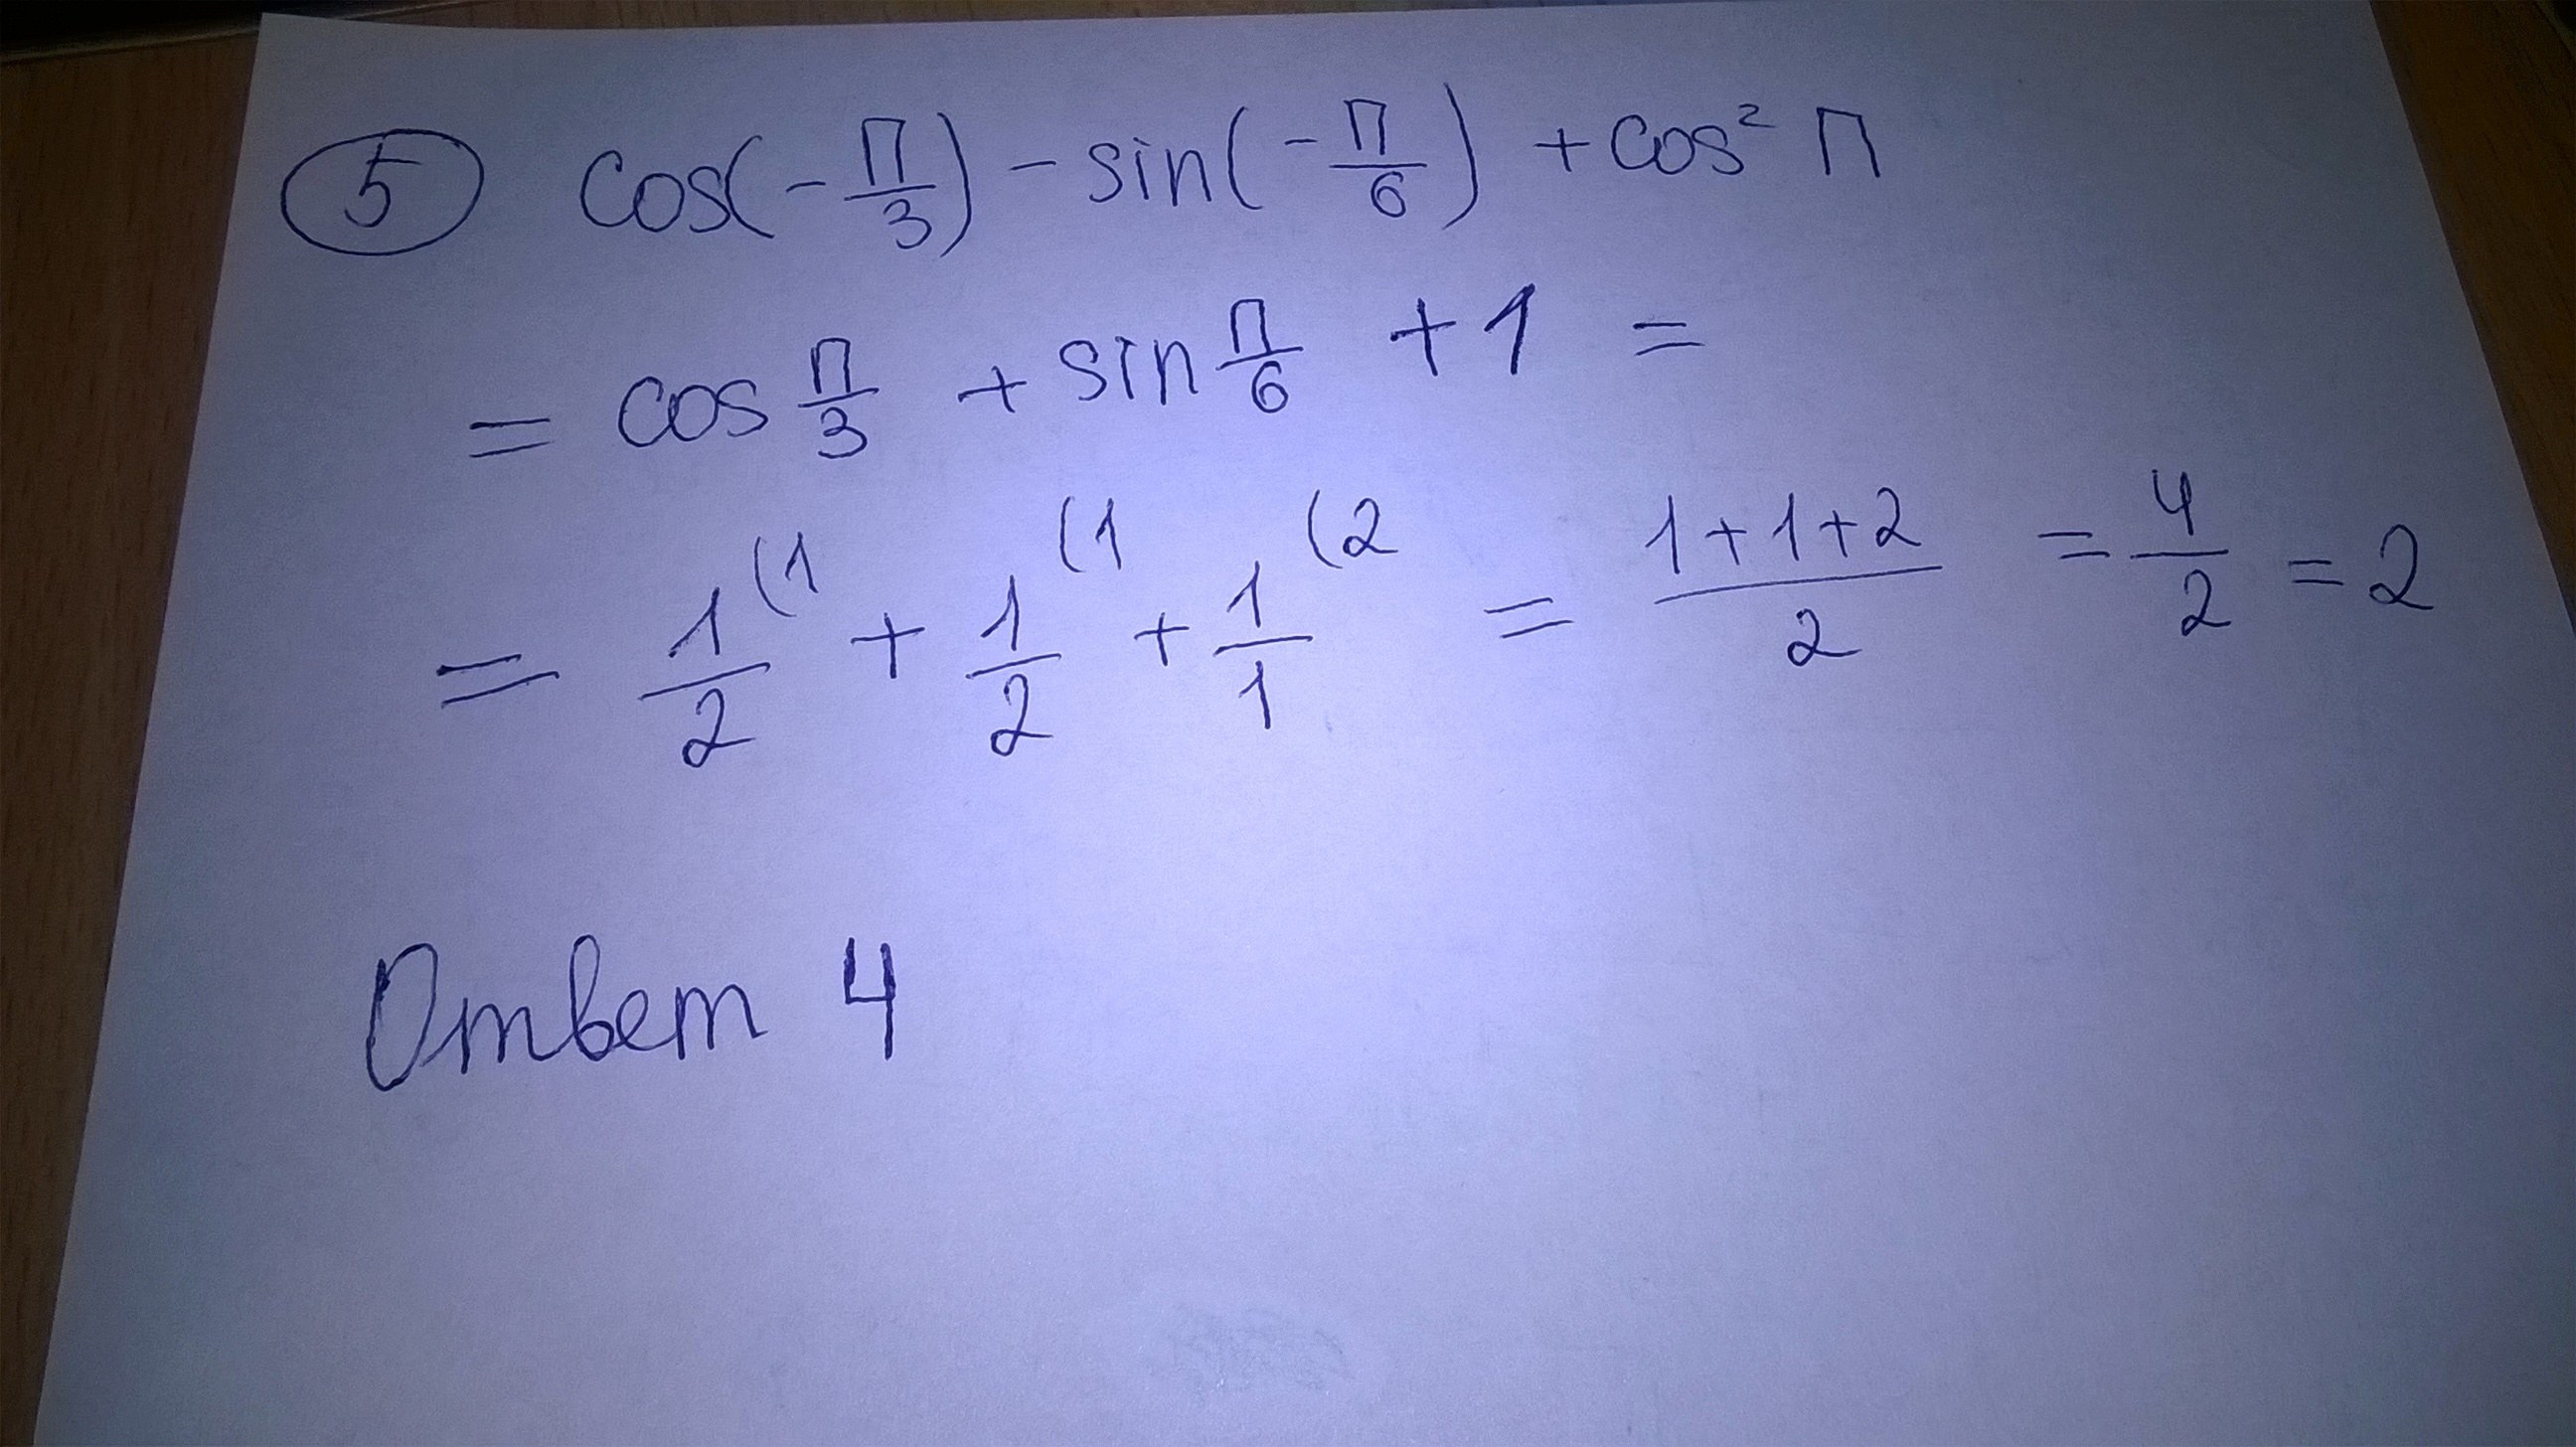 5 cos(-П/3) - sin(-П/6) + cos² П
= cos П/3 + sin П/6 + 1 =
= 1/2 (1 + 1/2 (1 + 1/1 (2 = (1+1+2)/2 = 4/2 = 2
Ответ 4